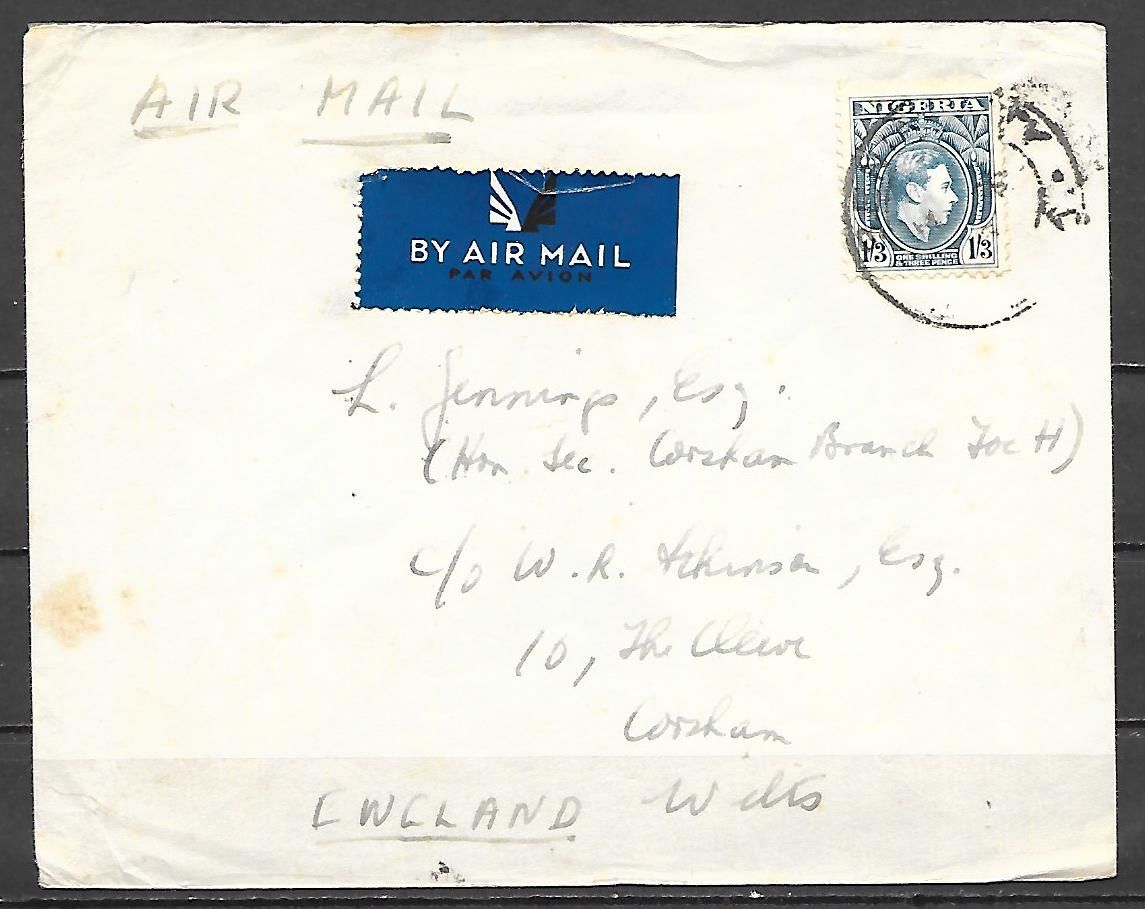 AIR MAIL
NIGERIA
1/3
ONE SHILLING
& THREE PENCE
1/3
BY AIR MAIL
PAR AVION
L. Jennings, Esq.
(Hon. Sec. Corsham Branch Toc H)
c/o W. R. Atkinson, Esq.
10, The Cleeve
Corsham
Wilts
ENGLAND